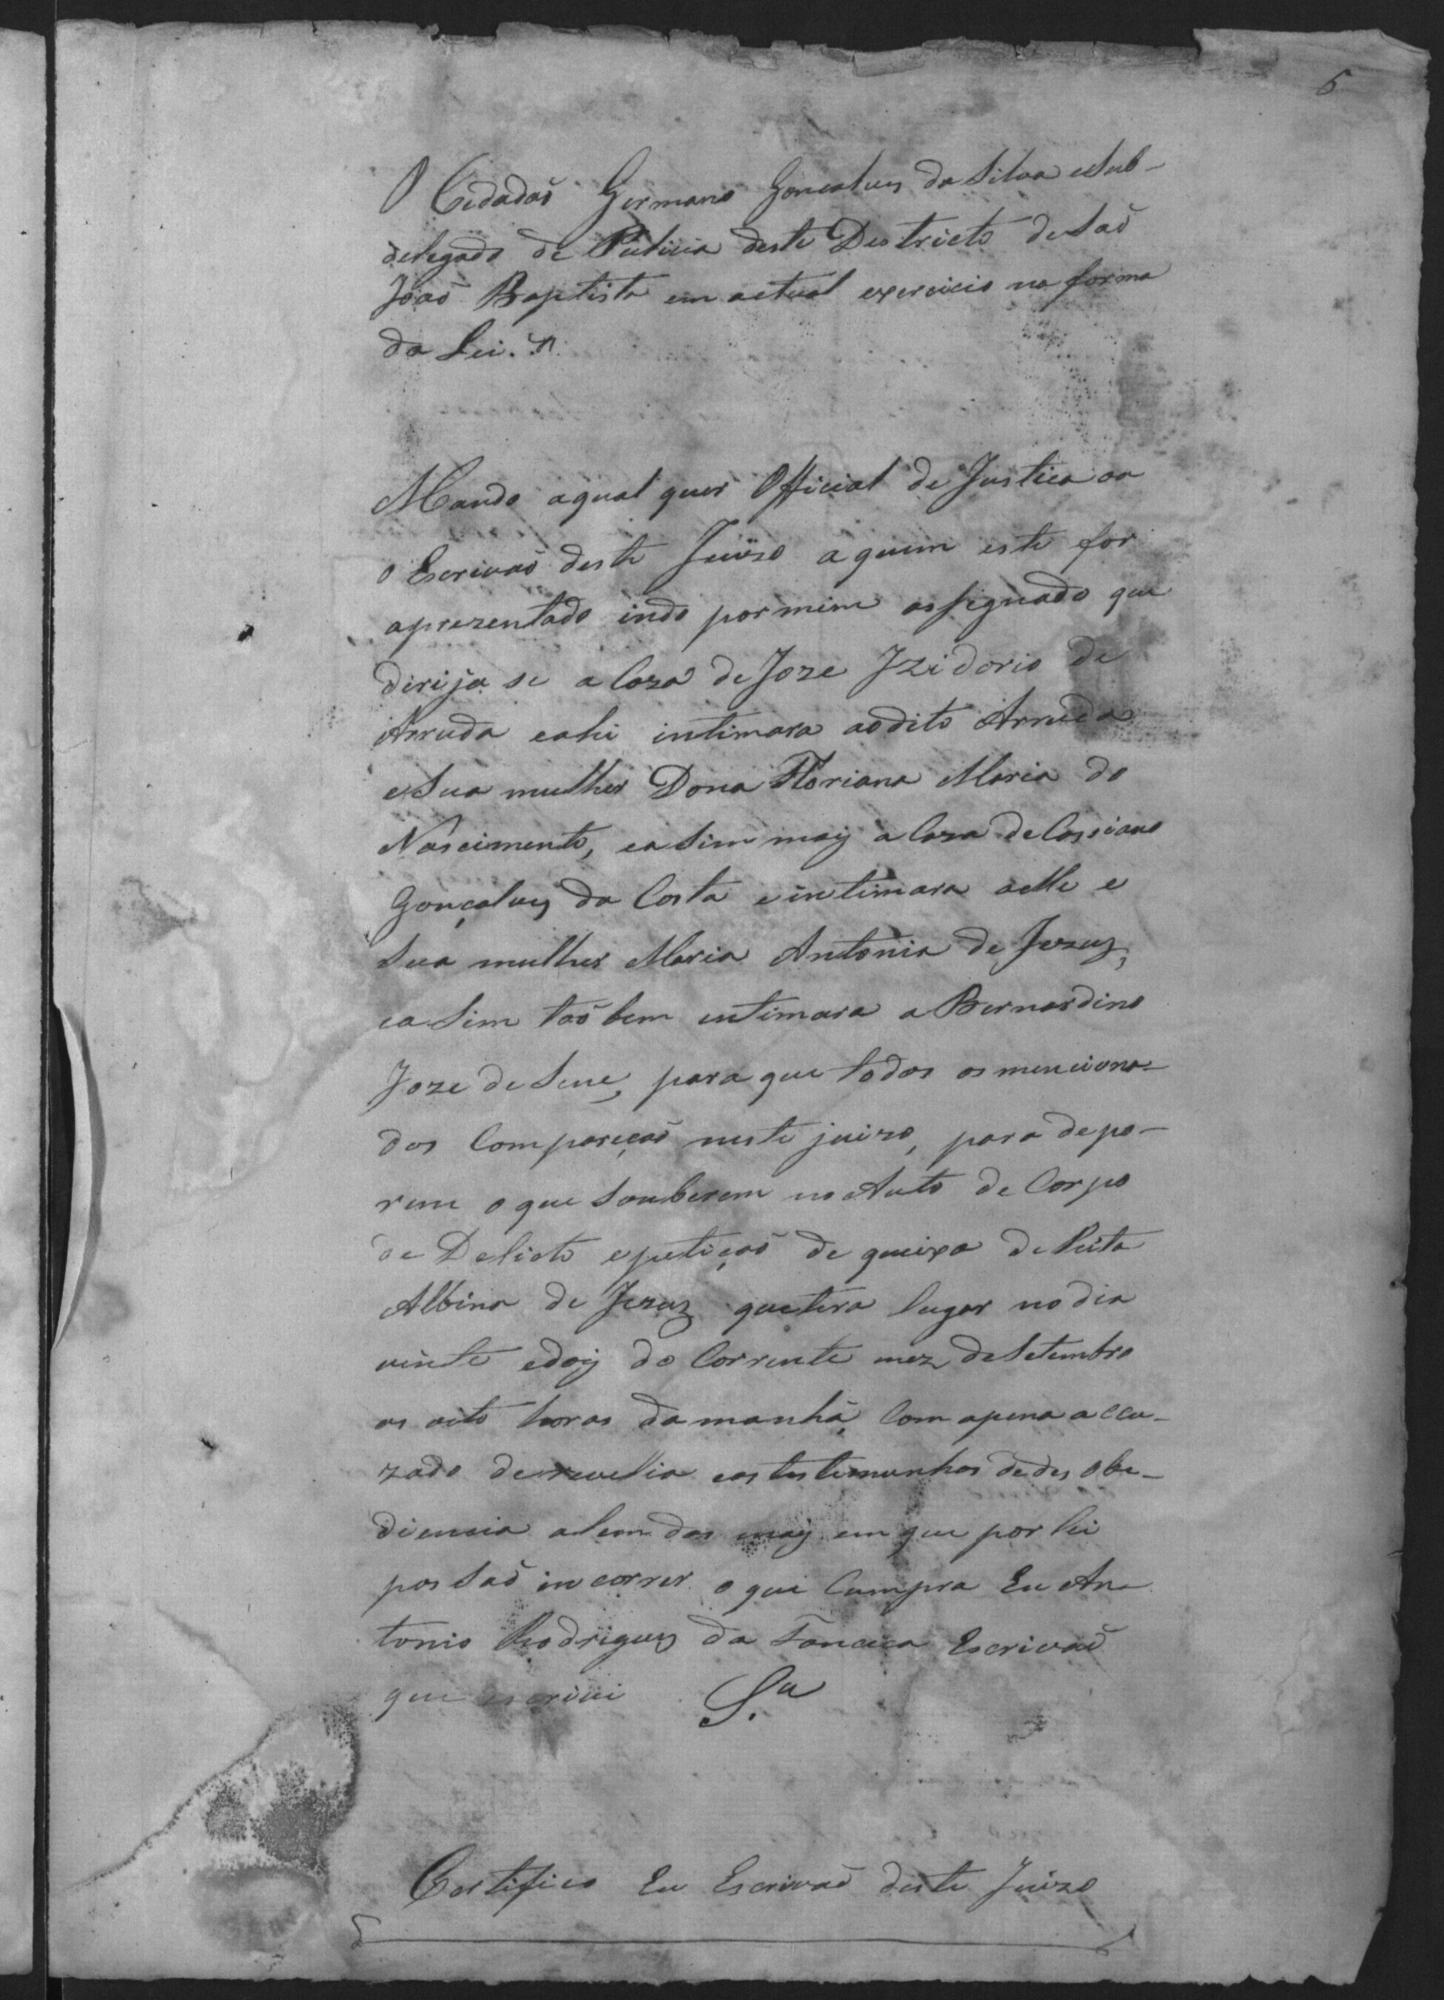 6
O Cidadaõ Germano Gonçalves da Silva Sub-
delegado de Policia deste Destricto de Saõ
Joaõ Baptista em actual exercicio na forma
da Lei.
Mando aqual quer Official de Justica ou
o Escrivaõ deste Juizo aquem este for
aprezentado indo por mim assignado que
dirija se a Caza de Joze Izidorio de
Arruda eahi intimara aodito Arruda
e Sua mulher Dona Floriana Maria do
Nascimento, ea Sim mais a Caza de Cassiano
Gonçalves da Costa e intimara aelle e
Sua mulher Maria Antonia de Jezus,
ea Sim taõ bem intimara a Bernardino
Joze de Sene, para que todos os menciona-
dos Compareçaõ neste juizo, para depo-
rem o que Souberem no Auto de Corpo
de Delicto epetiçaõ de queixa de Rita
Albina de Jezuz que tera lugar no dia
vinte edois do Corrente mez de Setembro
as oito horas da manhã, Com apena accu-
zado de revellia eas testemunhas dedesobe-
diencia alem das mais em que por lei
pos Saõ incorrer o que Cumpra Eu An-
tonio Rodrigues da Fonceca Escrivaõ
que escrivi S.ª
Certifico Eu Escrivaõ deste Juizo